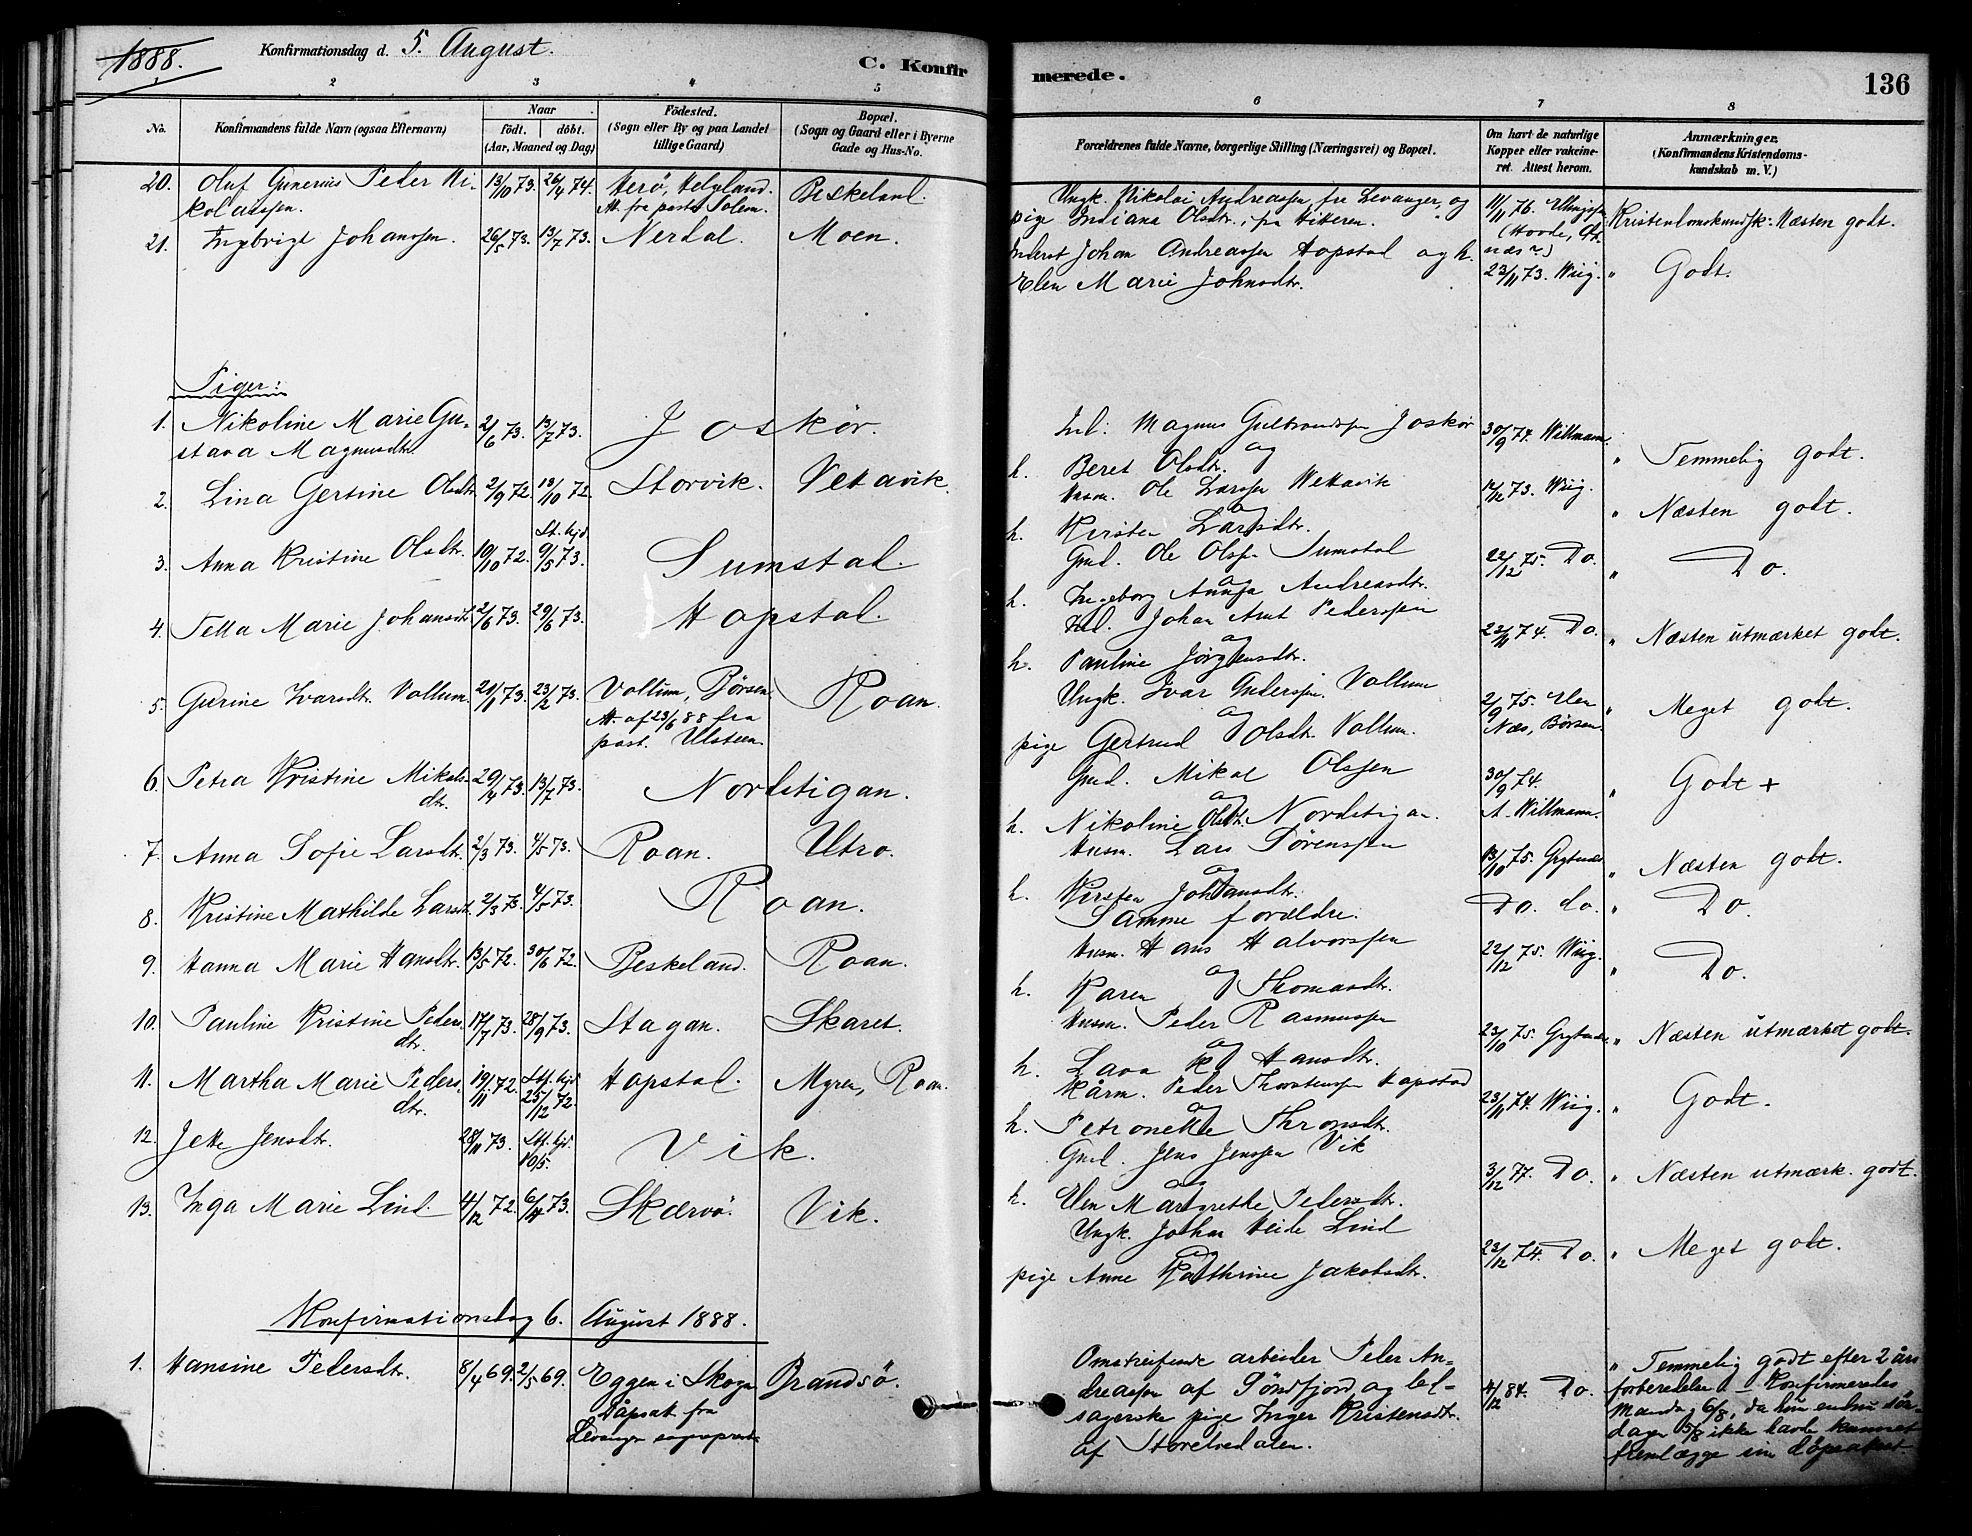 1888. Konfirmationsdag d. 5. August. C. Konfirmerede. 136
1 2 3 4 5 6 7 8
No. Konfirmandens fulde Navn (ogsaa Efternavn) Naar födt. döbt. (Aar, Maaned og Dag) Födested. (Sogn eller By og paa Landet tillige Gaard) Bopæl. (Sogn og Gaard eller i Byerne Gade og Hus-No. Forældrenes fulde Navne, borgerlige Stilling (Næringsvei) og Bopæl. Om havt de naturlige Kopper eller vakcineret. Attest herom. Anmærkninger. (Konfirmandens Kristendomskundskab m. V.)
20. Oluf Gunerius Peder Ni- 13/10 73. 26/4 74. Herö, Helgeland. Beskeland. Ungk. Nikolai Andreassen, fra Levanger, og 11/11 76.
kolaissen. At. fra past. Solem. pige Indiana Olsdtr., fra Hitteren. Kristendomskundsk: Næsten godt.
21. Ingbrigt Johanssen. 26/5 73. 13/7 73. Nerdal. Moen. Inderst Johan Andreassen Hopstad og h.
Elen Marie Johnsdtr. 23/11 73. Wiig. " Godt.
Piger:
1. Nikoline Marie Gu- 2/6 73. 13/7 73. Joskör. Inl. Magnus Gulbrandsen Joskör 30/9 74. Willmann.
stava Magnusdtr. og " Temmelig godt.
h. Beret Olsdtr.
2. Lina Gertine Olsdtr. 2/9 72. 13/10 72. Storvik. Vetavik. Husm. Ole Larssen Wetavik 12/12 73. Wiig.
og " Næsten godt.
h. Kirsten Larsdtr.
3. Anna Kristine Olsdtr. 10/10 72. St. hjd 9/5 73. Sumstad. Gmd. Ole Olsen Sumstad 22/12 75. Do.
og " Do.
h. Ingeborg Anna Andreasdtr.
4. Tella Marie Johansdtr. 2/6 73. 29/6 73. Hopstad. Inl. Johan Arnt Pederssen
og 23/11 74. Do. " Næsten utmærket godt.
h. Pauline Jörgensdtr.
5. Gurine Ivarsdtr. Vollum. 21/1 73. 23/2 73. Vollum, Børsen Roan. Ungk. Ivar Anderssen. Vollum
At. af 23/6 88 fra og 2/9 75. " Meget godt.
past. Ulsteen. pige Gertrud Olsdtr. Vollum. Næs, Børsen.
6. Petra Kristine Mikals- 29/4 73. 13/7 73. Nordstigan. Gmd. Mikal Olssen 30/9 74.
dtr. og " Godt +
h. Nikoline Olsdtr. Nordstigan. A. Willmann.
7. Anna Sofie Larsdtr. 2/3 73. 4/5 73. Roan. Utro. Husm. Lars Sørenssen 13/10 75.
og " Næsten godt.
h. Kirsten Johansdtr.
8. Kristine Mathilde Larsdtr. 2/3 73. 4/5 73. Roan. Samme forældre. Do. do. " Do.
9. Hanna Marie Hansdtr. 13/5 72. 30/6 72. Beskeland. Roan. Husm. Hans Halvorssen 22/12 75. Wiig.
og " Do.
h. Karen Thomasdtr.
10. Pauline Kristine Peders- 17/7 73. 28/9 73. Stagan. Skaret. Husm. Peder Rasmussen
dtr. og 23/10 75. " Næsten utmærket godt.
h. Lava K. Hansdtr.
11. Martha Marie Peders- 19/11 72. St. hjd 25/12 72. Hopstad. Myren, Roan. Kårm. Peder Thorstensen Hopstad
dtr. og 23/11 74. Wiig. " Godt.
h. Petronelle Thronsdtr.
12. Jette Jensdtr. 28/11 73. St. hjd 10/5. Vik. Gmd. Jens Jenssen Vik
og 3/12 77. Do. " Næsten utmærk. godt.
h. Elen Margrethe Pedersdtr.
13. Inga Marie Lind. 4/12 72. 6/4 73. Skærvö. Vik. Ungk. Johan Heide Lind
og 23/12 74. Do. " Meget godt.
pige Anne Kathrine Jakobsdtr.
Konfirmationsdag 6. August 1888.
1. Hansine Pedersdtr. 8/4 69. 2/5 69. Eggen i Skogn Brandsö. Omstreifende arbeider Peder An- " Temmelig godt efter 2 års
Dåpsat. fra dreassen af Söndfjord og led- 4/12 84. Do. forberedelse – Konfirmeredes
Levanger sognepræst. sagerske pige Inger Kristensdtr. Mandag 6/8, da hun endnu sön-
af Storelvedalen. dagen 5/8 ikke havde kunnet
fremlægge sin döpsattest